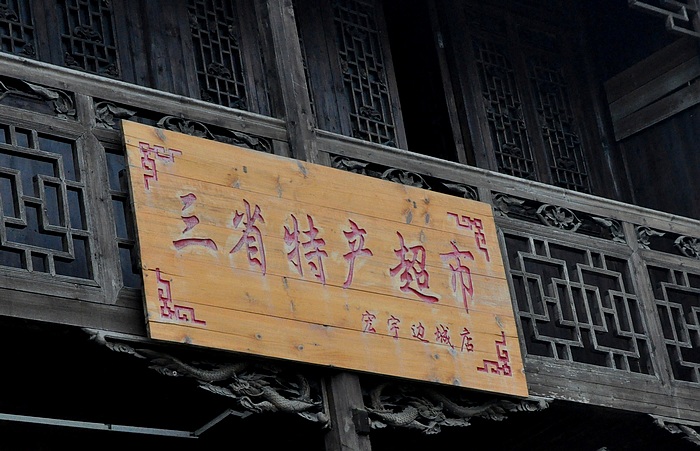 三省特产超市
宏宇边城店